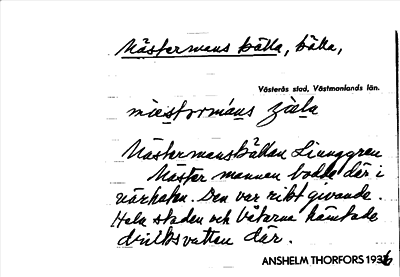 Mästermans källa, källa,
Västerås stad, Västmanlands län.
Mästermanskällan Ljunggren
Mäster mannen bodde där i
närheten. Den var rikt givande.
Hela staden och båtarna hämtade
dricksvatten där.
ANSHELM THORFORS 1936